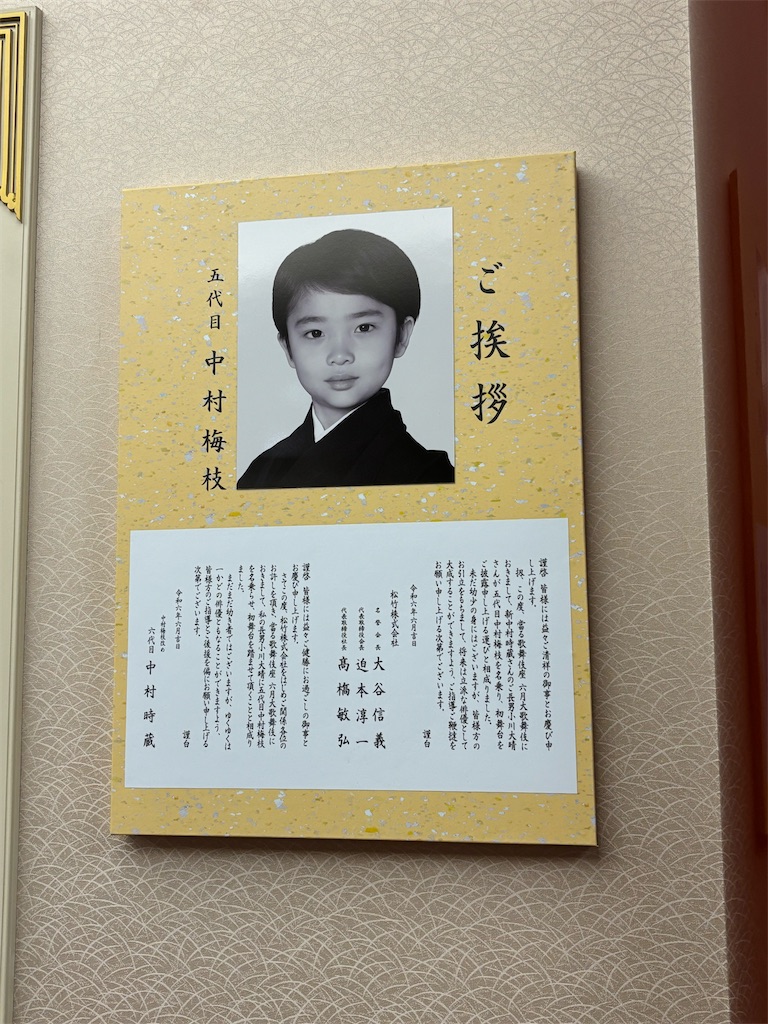 ご挨拶
五代目 中村梅枝
謹啓 皆様には益々ご清祥の御事とお慶び申
し上げます。
扨、この度、當る歌舞伎座 六月大歌舞伎に
おきまして、新中村時蔵さんのご長男小川大晴
さんが五代目中村梅枝を名乗り、初舞台を
ご披露申し上げる運びと相成りました。
未だ幼少の身にはございますが、皆様方の
お引立をもちまして、将来は立派な俳優として
大成することができますよう、ご指導ご鞭撻を
お願い申し上げる次第でございます。
謹白
令和六年六月吉日
松竹株式会社
名誉会長 大谷信義
代表取締役会長 迫本淳一
代表取締役社長 髙橋敏弘
謹啓 皆様には益々ご健勝にお過ごしの御事と
お慶び申し上げます。
さてこの度、松竹株式会社をはじめご関係各位の
お許しを頂き、當る歌舞伎座 六月大歌舞伎に
おきまして、私の長男小川大晴に五代目中村梅枝
を名乗らせ、初舞台を踏ませて頂くことと相成り
ました。
まだまだ幼き者ではございますが、ゆくゆくは
一かどの俳優ともなることができますよう、
皆様方のご指導とご後援を偏にお願い申し上げる
次第でございます。
謹白
令和六年六月吉日
中村梅枝改め
六代目 中村時蔵